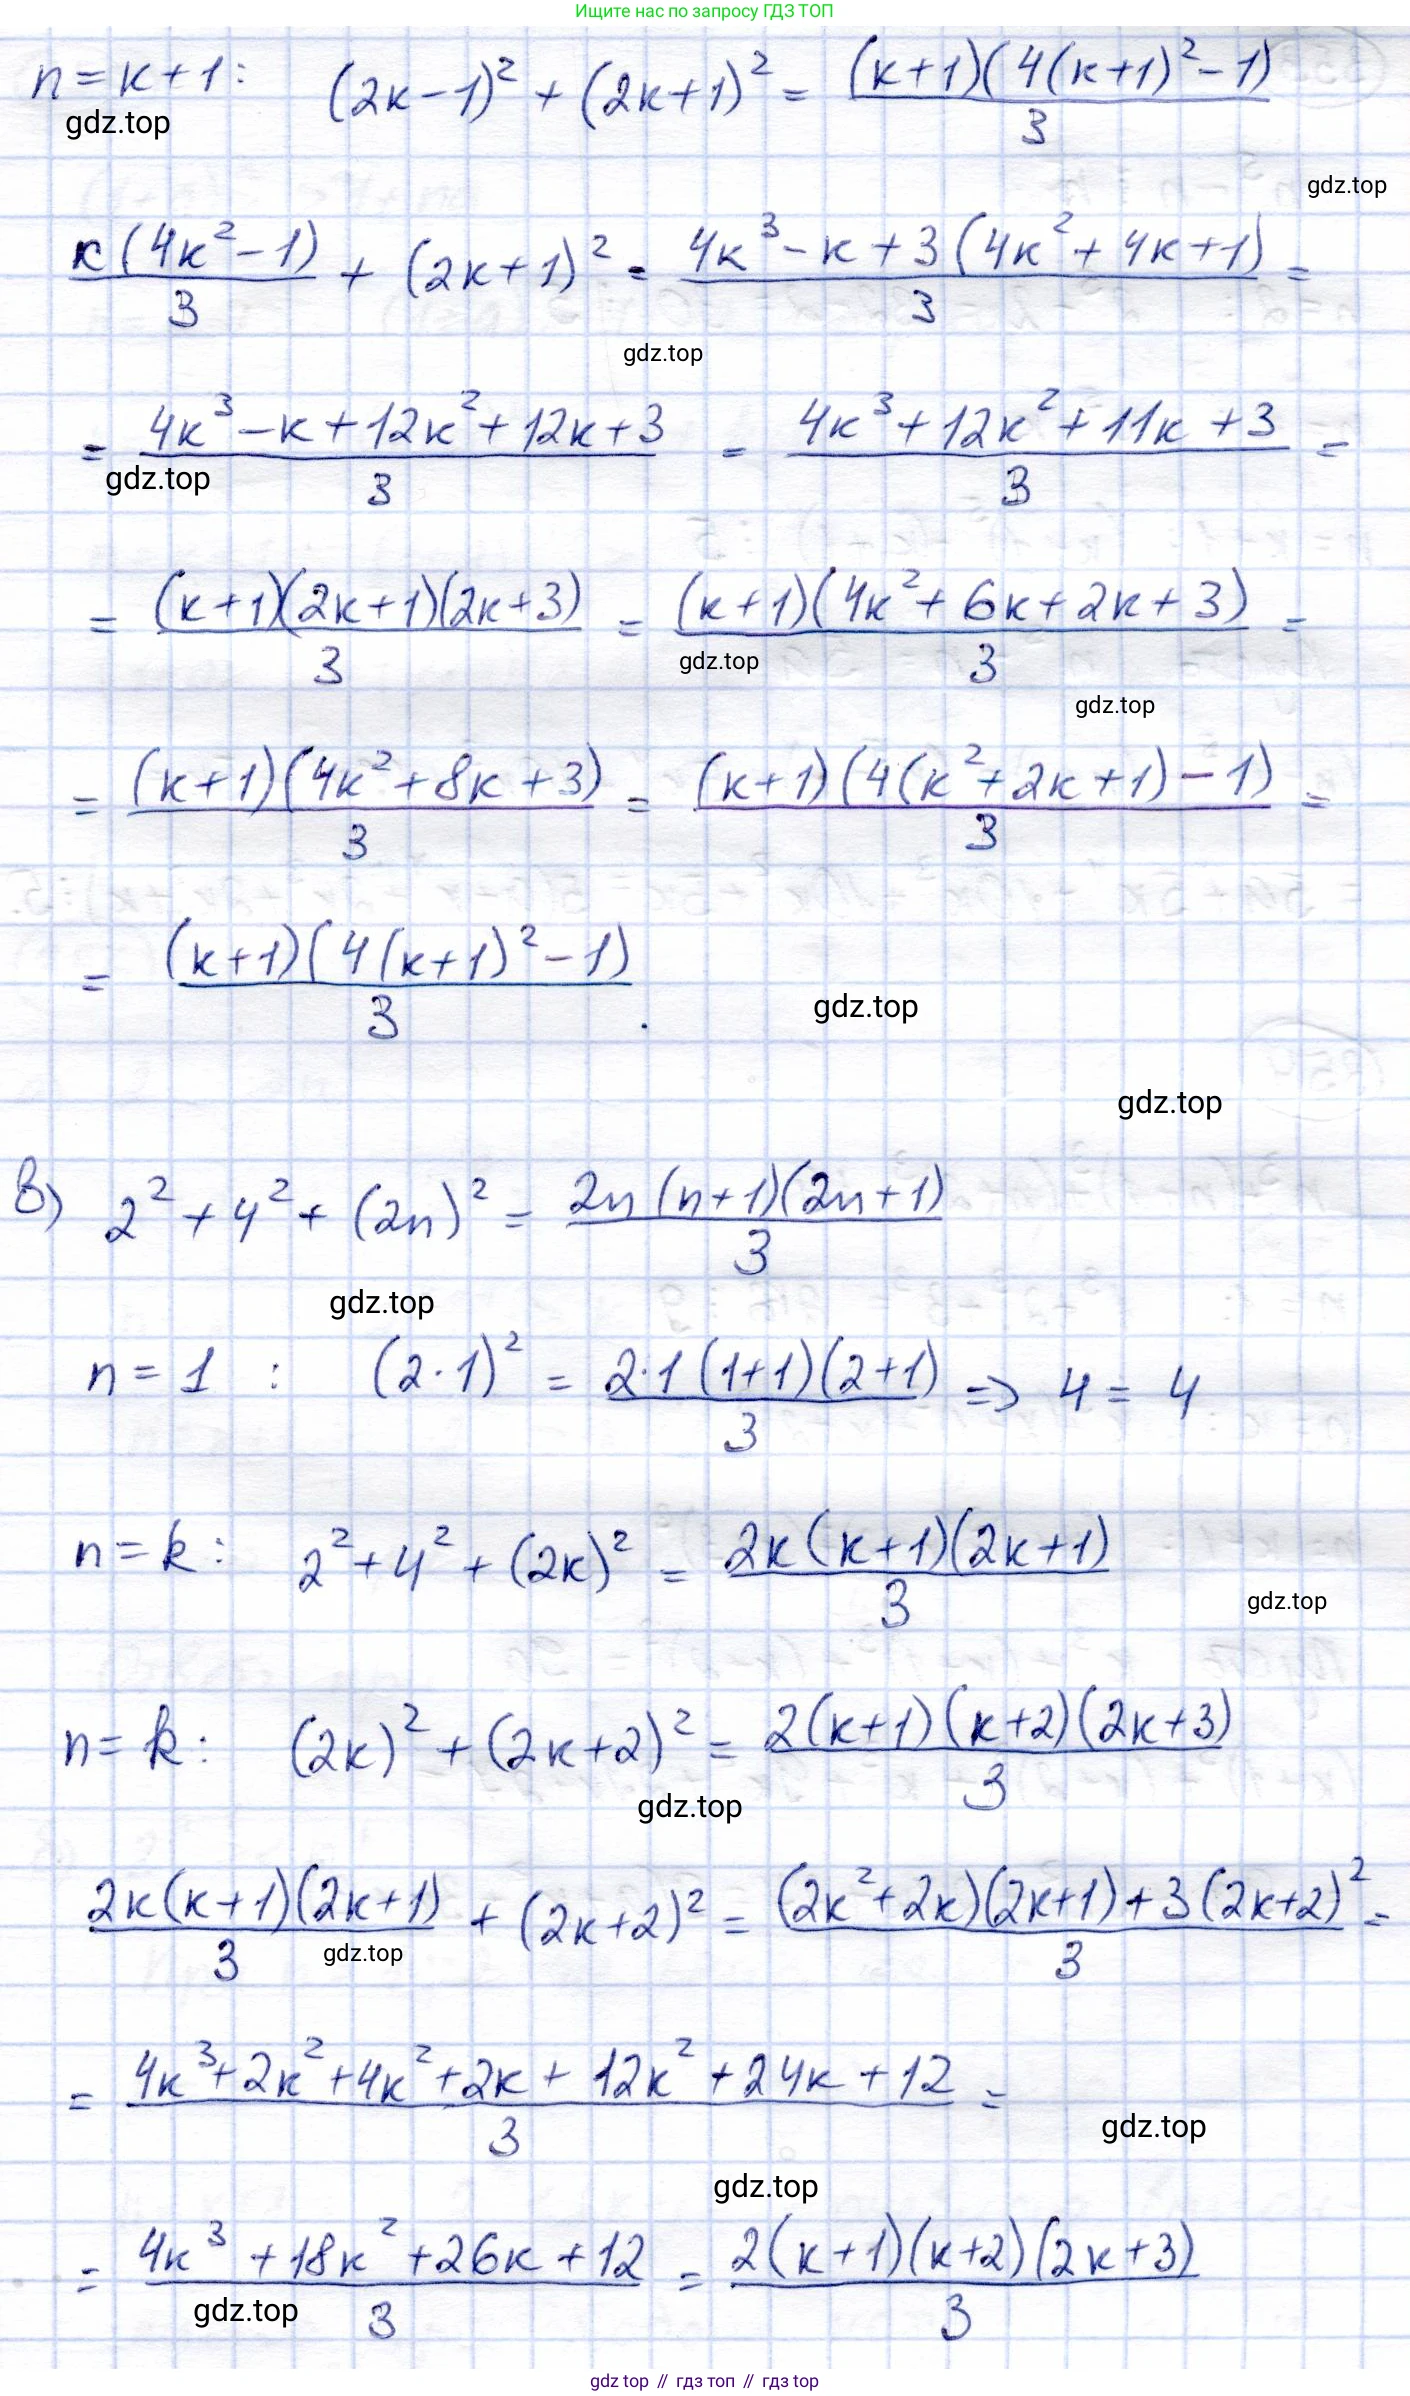 Ищите нас по запросу ГДЗ ТОП
n = k + 1 : (2k - 1)² + (2k + 1)² = (k + 1)(4(k + 1)² - 1) / 3
gdz.top
gdz.top
k(4k² - 1) / 3 + (2k + 1)² = 4k³ - k + 3(4k² + 4k + 1) / 3 =
gdz.top
= 4k³ - k + 12k² + 12k + 3 / 3 = 4k³ + 12k² + 11k + 3 / 3 =
gdz.top
= (k + 1)(2k + 1)(2k + 3) / 3 = (k + 1)(4k² + 6k + 2k + 3) / 3 =
gdz.top
gdz.top
= (k + 1)(4k² + 8k + 3) / 3 = (k + 1)(4(k² + 2k + 1) - 1) / 3 =
= (k + 1)(4(k + 1)² - 1) / 3 .
gdz.top
gdz.top
в) 2² + 4² + (2n)² = 2n(n + 1)(2n + 1) / 3
gdz.top
n = 1 : (2 · 1)² = 2 · 1(1 + 1)(2 + 1) / 3 => 4 = 4
n = k : 2² + 4² + (2k)² = 2k(k + 1)(2k + 1) / 3
gdz.top
n = k : (2k)² + (2k + 2)² = 2(k + 1)(k + 2)(2k + 3) / 3
gdz.top
2k(k + 1)(2k + 1) / 3 + (2k + 2)² = (2k² + 2k)(2k + 1) + 3(2k + 2)² / 3 =
gdz.top
= 4k³ + 2k² + 4k² + 2k + 12k² + 24k + 12 / 3 =
gdz.top
gdz.top
= 4k³ + 18k² + 26k + 12 / 3 = 2(k + 1)(k + 2)(2k + 3) / 3
gdz.top
gdz top // гдз топ // gdz top